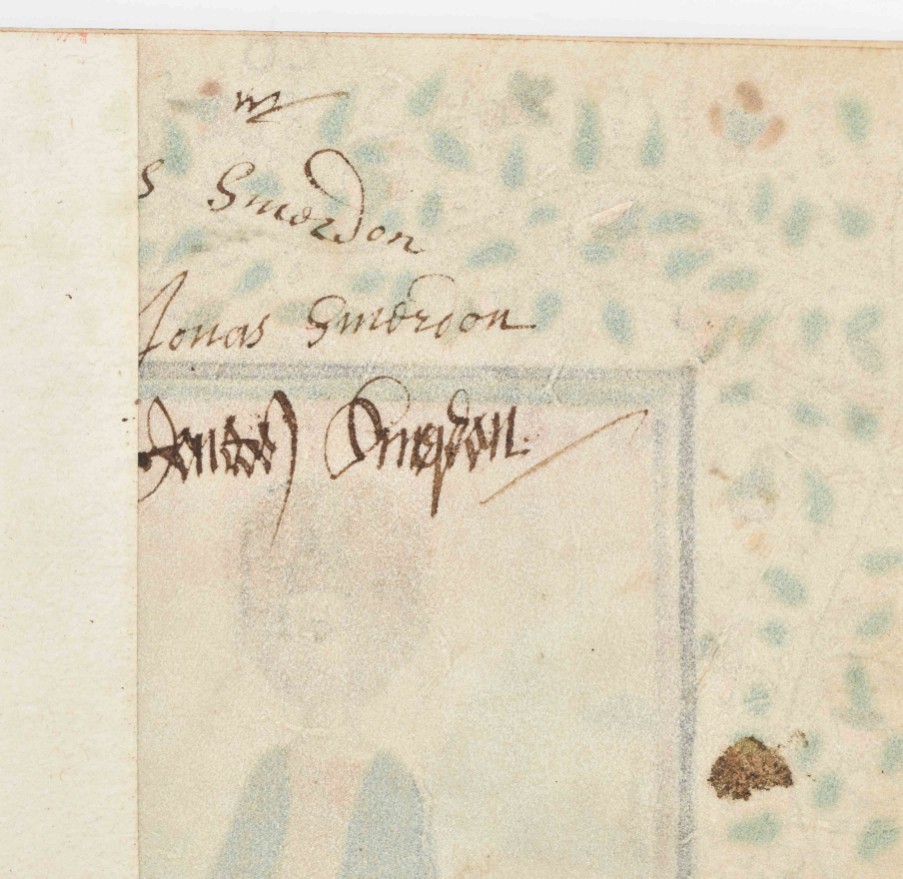 m
s Smerdon
Jonas Smerdon
Jonas Smerdon